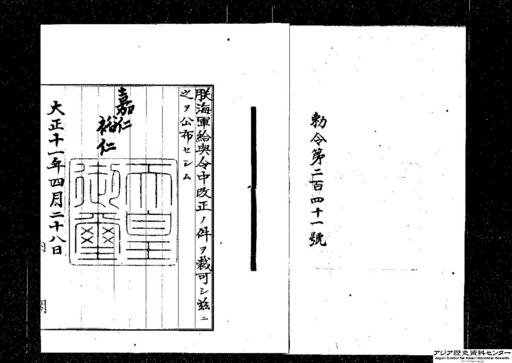 勅令第二百四十一號
朕海軍給與令中改正ノ件ヲ裁可シ茲ニ
之ヲ公布セシム
嘉仁
裕仁
天皇
御璽
大正十一年四月二十八日
アジア歴史資料センター
Japan Center for Asian Historical Records